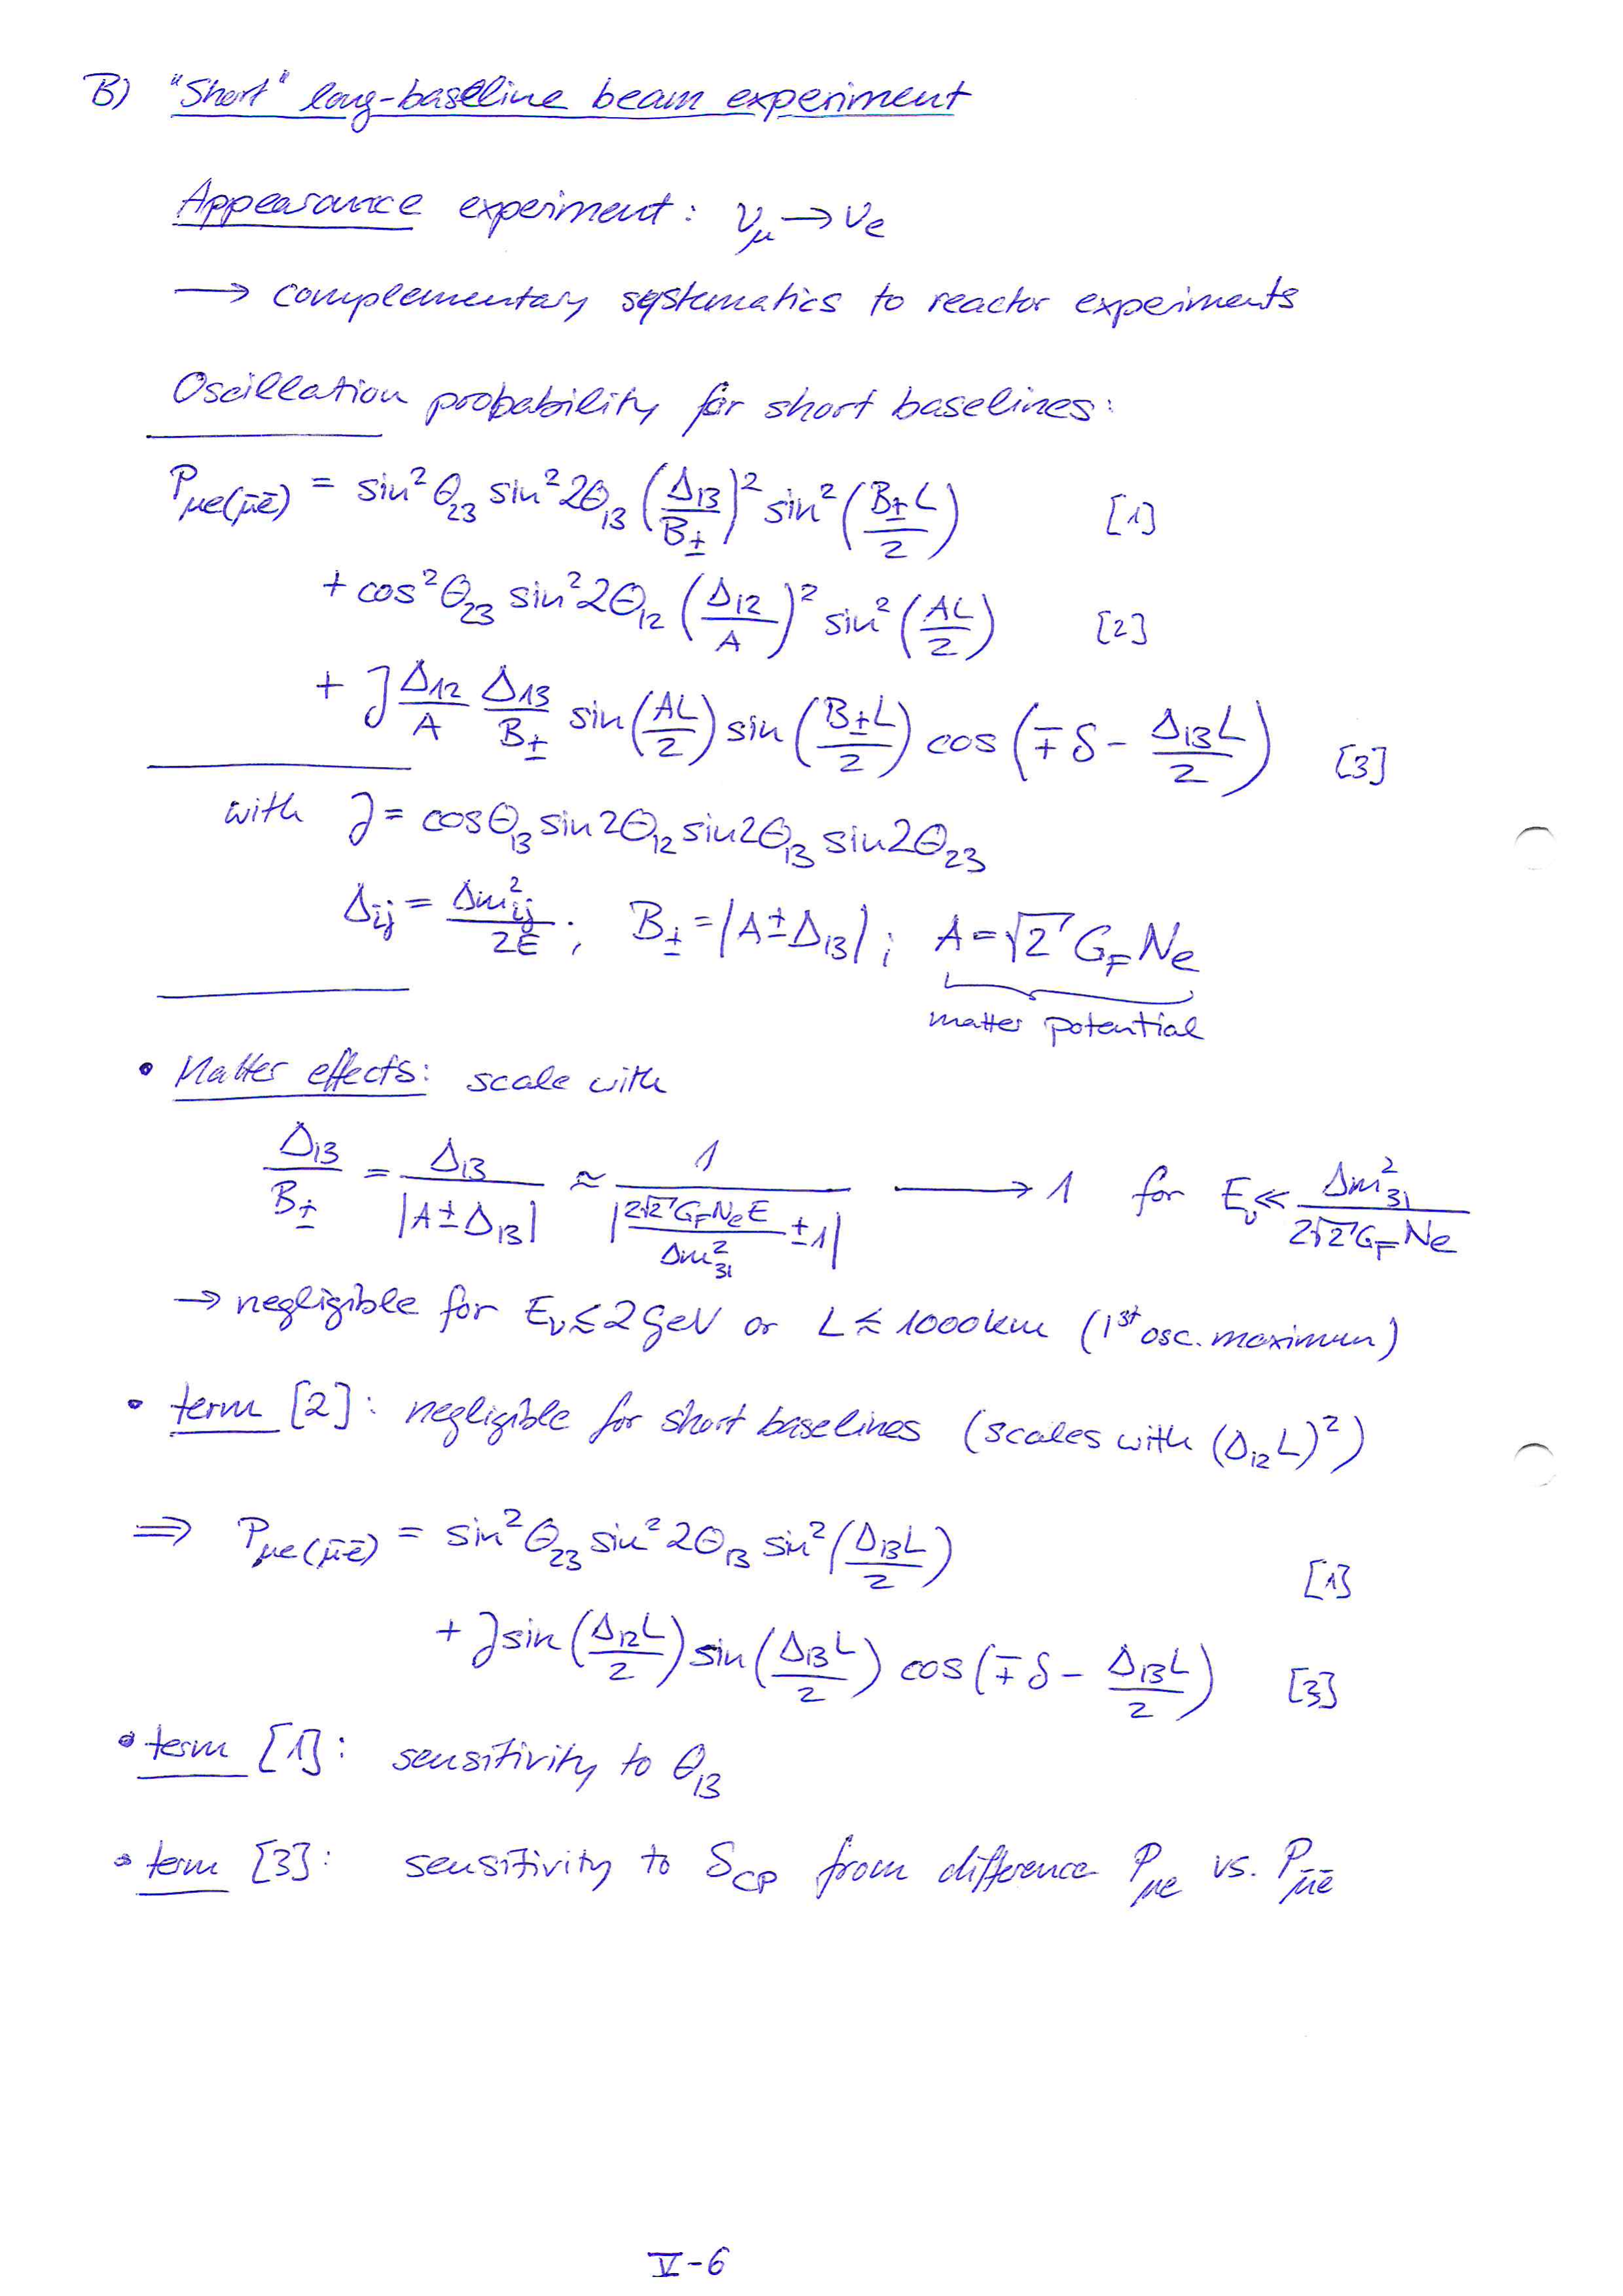 B) "Short" long-baseline beam experiment
Appearance experiment: ν_μ → ν_e
→ complementary systematics to reactor experiments
Oscillation probability for short baselines:
P_μe(μ̄ē) = sin²θ₂₃ sin²2θ₁₃ (Δ₁₃/B±)² sin²(B±L/2) [1]
+ cos²θ₂₃ sin²2θ₁₂ (Δ₁₂/A)² sin²(AL/2) [2]
+ J Δ₁₂/A Δ₁₃/B± sin(AL/2) sin(B±L/2) cos(∓δ − Δ₁₃L/2) [3]
with J = cosθ₁₃ sin2θ₁₂ sin2θ₁₃ sin2θ₂₃
Δ_ij = Δm²_ij/2E ; B± = |A±Δ₁₃| ; A = √2 G_F N_e
matter potential
• Matter effects: scale with
Δ₁₃/B± = Δ₁₃/|A±Δ₁₃| ≈ 1/|2√2 G_F N_e E/Δm²₃₁ ± 1| → 1 for E_ν ≪ Δm²₃₁/2√2 G_F N_e
→ negligible for E_ν ≲ 2 GeV or L ≲ 1000 km (1st osc. maximum)
• term [2]: negligible for short baselines (scales with (Δ₁₂L)²)
⇒ P_μe(μ̄ē) = sin²θ₂₃ sin²2θ₁₃ sin²(Δ₁₃L/2) [1]
+ J sin(Δ₁₂L/2) sin(Δ₁₃L/2) cos(∓δ − Δ₁₃L/2) [3]
• term [1]: sensitivity to θ₁₃
• term [3]: sensitivity to δ_CP from difference P_μe vs. P_μ̄ē
V-6